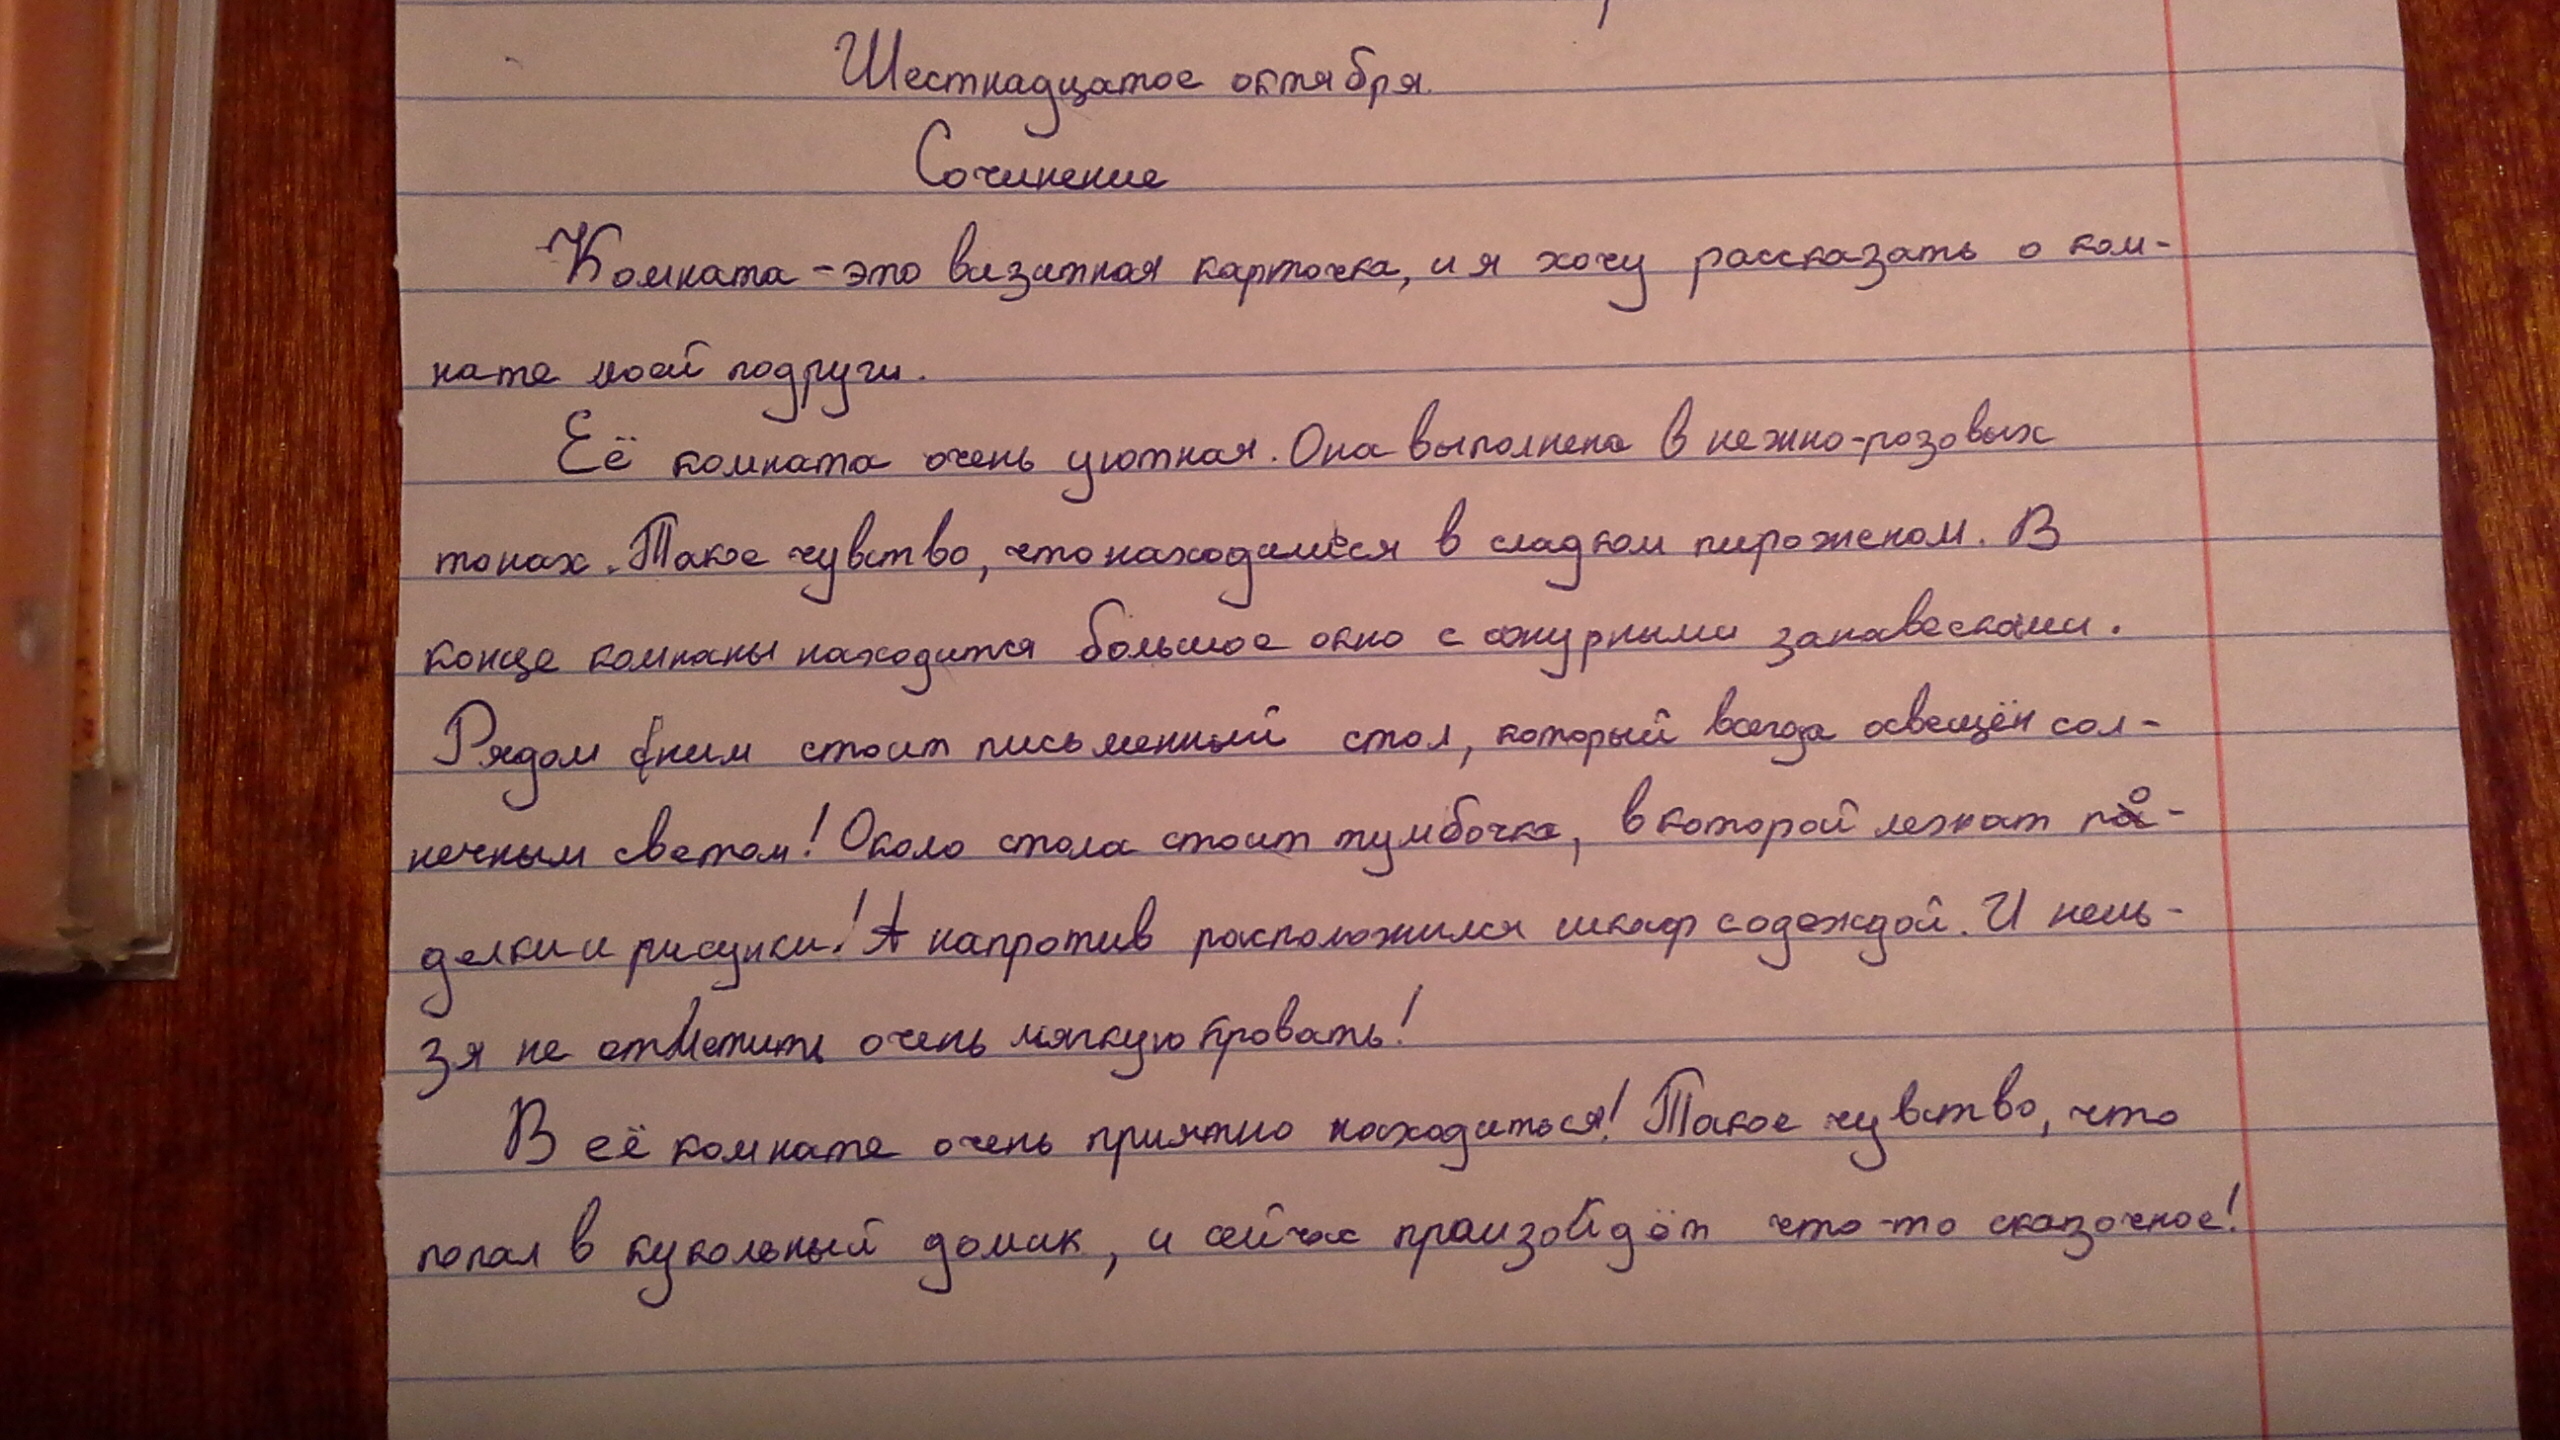 Шестнадцатое октября.
Сочинение
Комната - это визитная карточка, и я хочу рассказать о ком-
нате моей подруги.
Её комната очень уютная. Она выполнена в нежно-розовых
тонах. Такое чувство, что находишься в сладком пироженом. В
конце комнаны находится большое окно с ажурными занавесками.
Рядом с ним стоит письменный стол, который всегда освещён сол-
нечным светом! Около стола стоит тумбочка, в которой лежат по-
делки и рисунки! А напротив расположился шкаф с одеждой. И нель-
зя не отметить очень мягкую кровать!
В её комнате очень приятно находиться! Такое чувство, что
попал в кукольный домик, и сейчас произойдёт что-то сказочное!